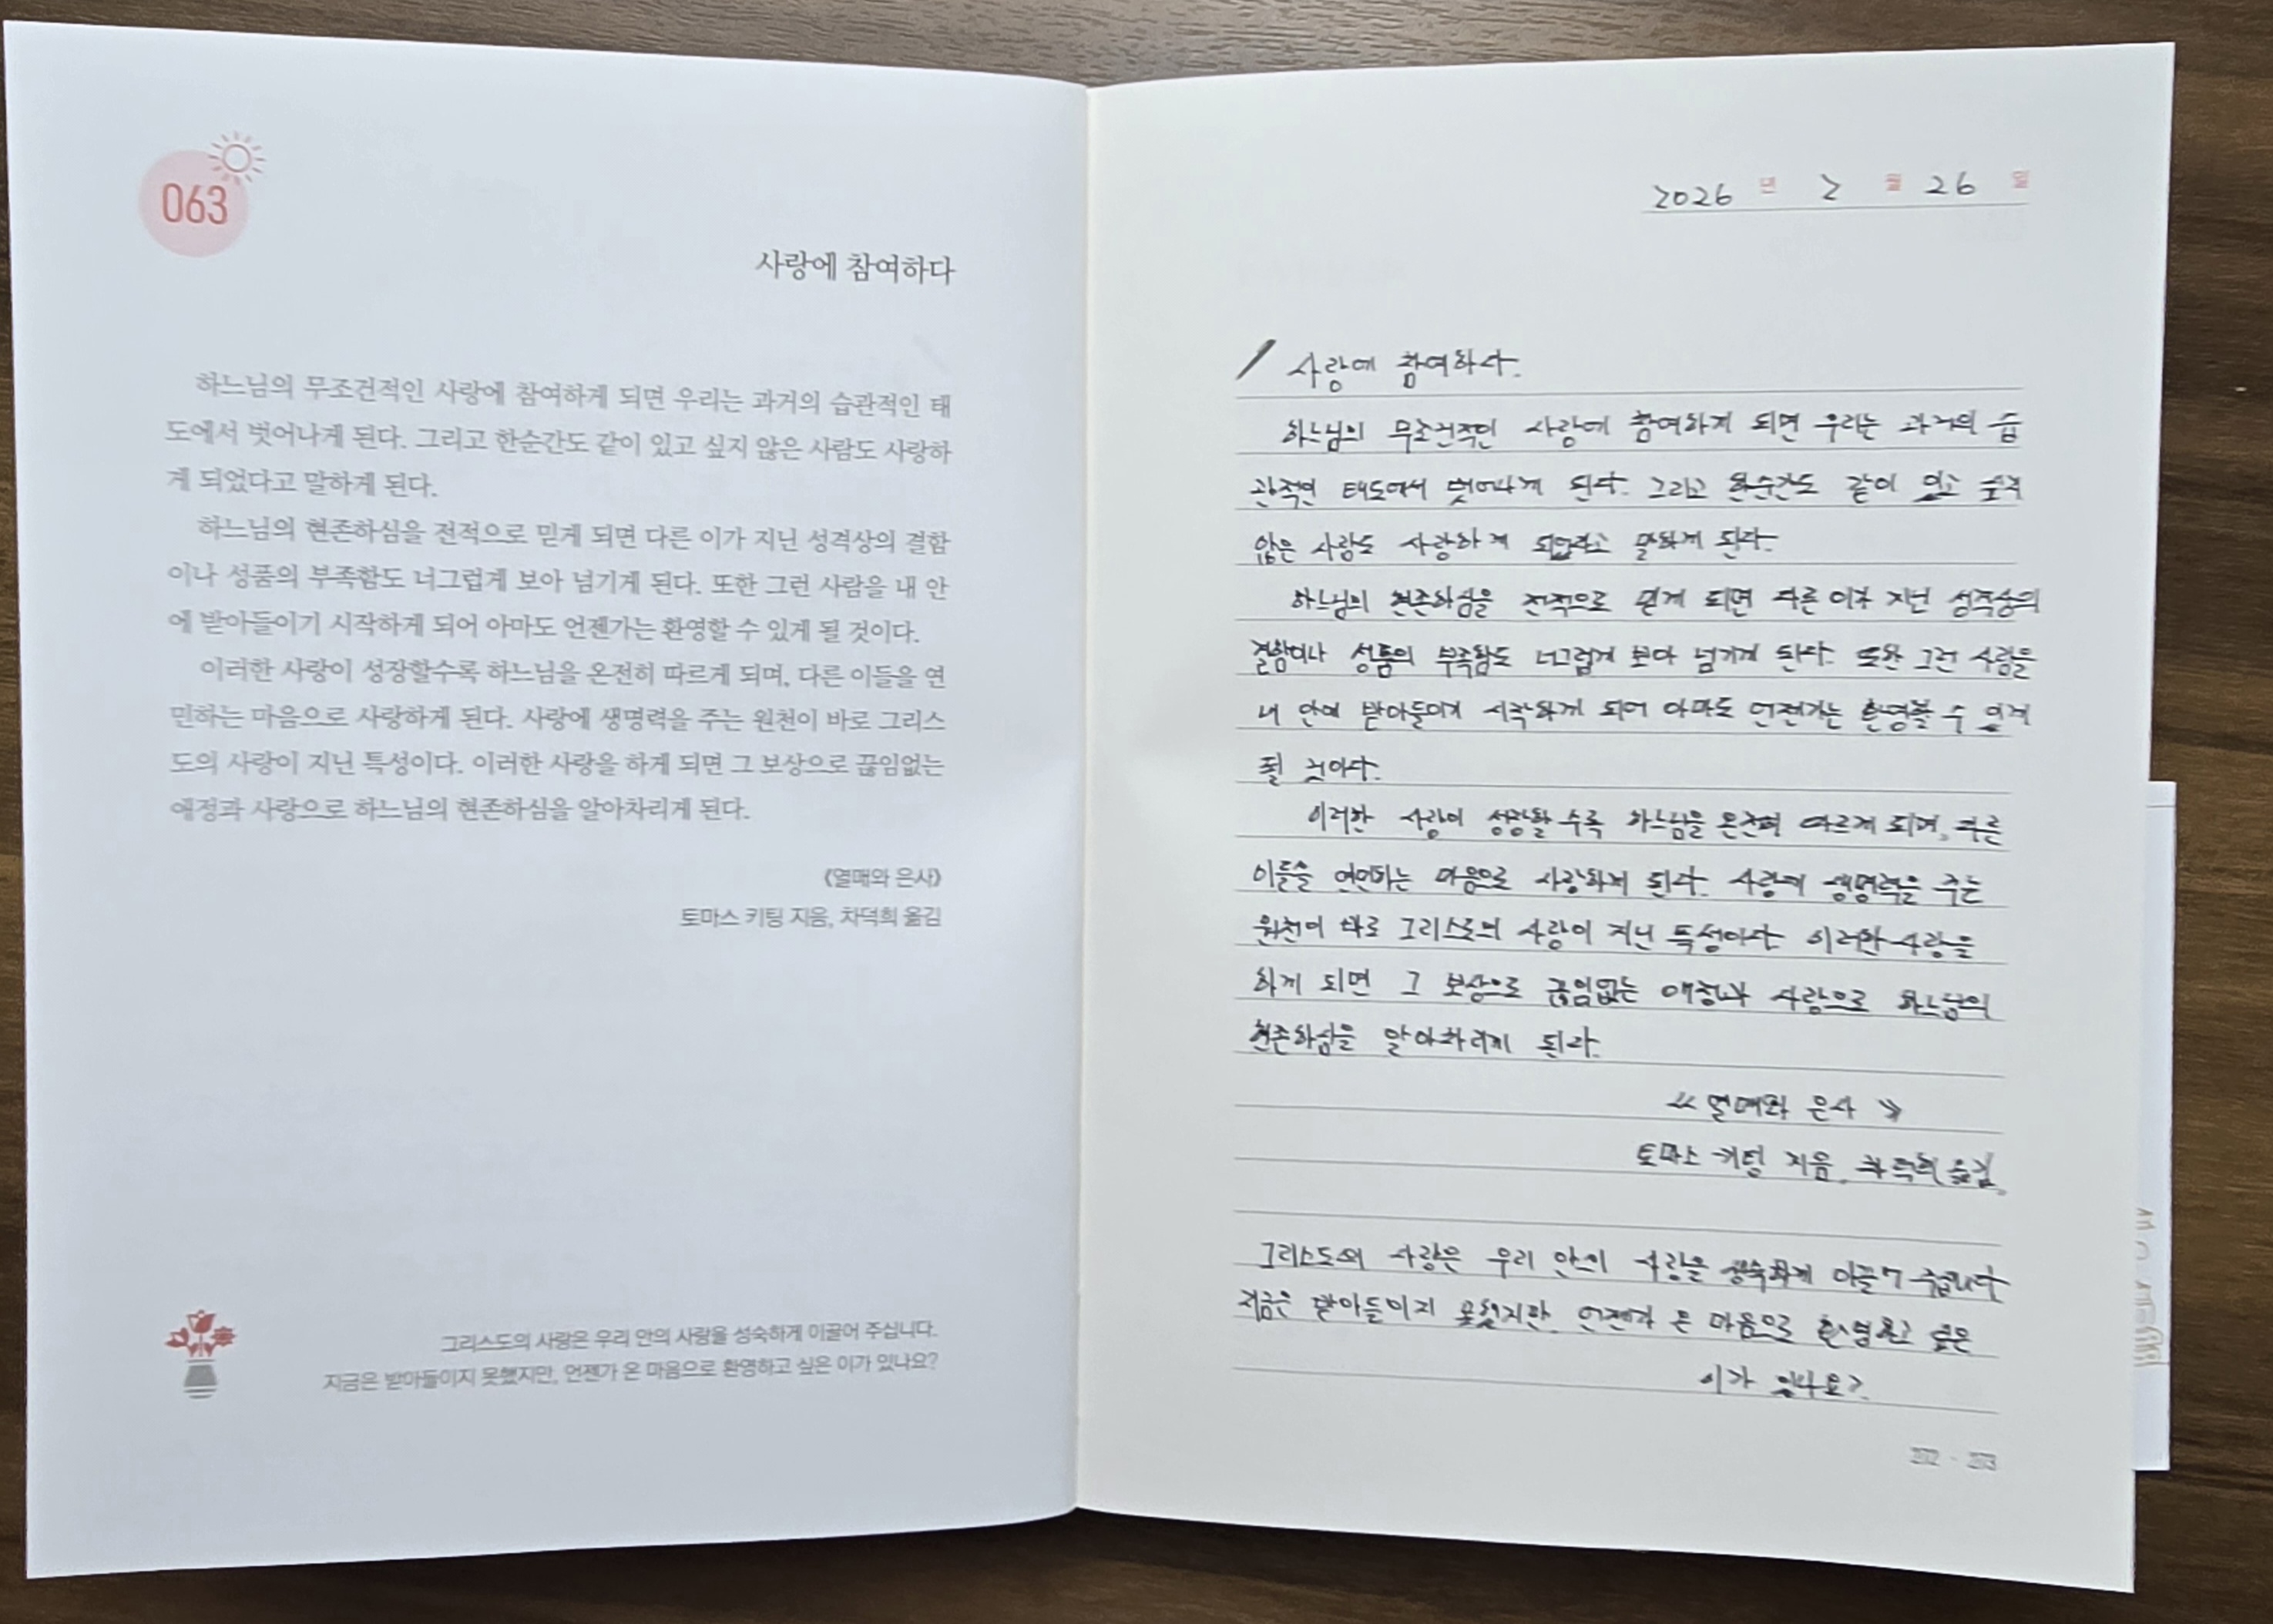 063
사랑에 참여하다
하느님의 무조건적인 사랑에 참여하게 되면 우리는 과거의 습관적인 태
도에서 벗어나게 된다. 그리고 한순간도 같이 있고 싶지 않은 사람도 사랑하
게 되었다고 말하게 된다.
하느님의 현존하심을 전적으로 믿게 되면 다른 이가 지닌 성격상의 결함
이나 성품의 부족함도 너그럽게 보아 넘기게 된다. 또한 그런 사람을 내 안
에 받아들이기 시작하게 되어 아마도 언젠가는 환영할 수 있게 될 것이다.
이러한 사랑이 성장할수록 하느님을 온전히 따르게 되며, 다른 이들을 연
민하는 마음으로 사랑하게 된다. 사랑에 생명력을 주는 원천이 바로 그리스
도의 사랑이 지닌 특성이다. 이러한 사랑을 하게 되면 그 보상으로 끊임없는
애정과 사랑으로 하느님의 현존하심을 알아차리게 된다.
《열매와 은사》
토마스 키팅 지음, 차덕희 옮김
그리스도의 사랑은 우리 안의 사랑을 성숙하게 이끌어 주십니다.
지금은 받아들이지 못했지만, 언젠가 온 마음으로 환영하고 싶은 이가 있나요?
2026 년 2 월 26 일
/ 사랑에 참여하다.
하느님의 무조건적인 사랑에 참여하게 되면 우리는 과거의 습
관적인 태도에서 벗어나게 된다. 그리고 한순간도 같이 있고 싶지
않은 사람도 사랑하게 되었다고 말하게 된다.
하느님의 현존하심을 전적으로 믿게 되면 다른 이가 지닌 성격상의
결함이나 성품의 부족함도 너그럽게 보아 넘기게 된다. 또한 그런 사람을
내 안에 받아들이기 시작하게 되어 아마도 언젠가는 환영할 수 있게
될 것이다.
이러한 사랑이 성장할 수록 하느님을 온전히 따르게 되며, 다른
이들을 연민하는 마음으로 사랑하게 된다. 사랑에 생명력을 주는
원천이 바로 그리스도의 사랑이 지닌 특성이다 이러한 사랑을
하게 되면 그 보상으로 끊임없는 애정과 사랑으로 하느님의
현존하심을 알아차리게 된다.
《 열매와 은사 》
토마스 키팅 지음, 차덕희 옮김.
그리스도의 사랑은 우리 안의 사랑을 성숙하게 이끌어 주십니다
지금은 받아들이지 못했지만, 언젠가 온 마음으로 환영하고 싶은
이가 있나요?
272 · 273